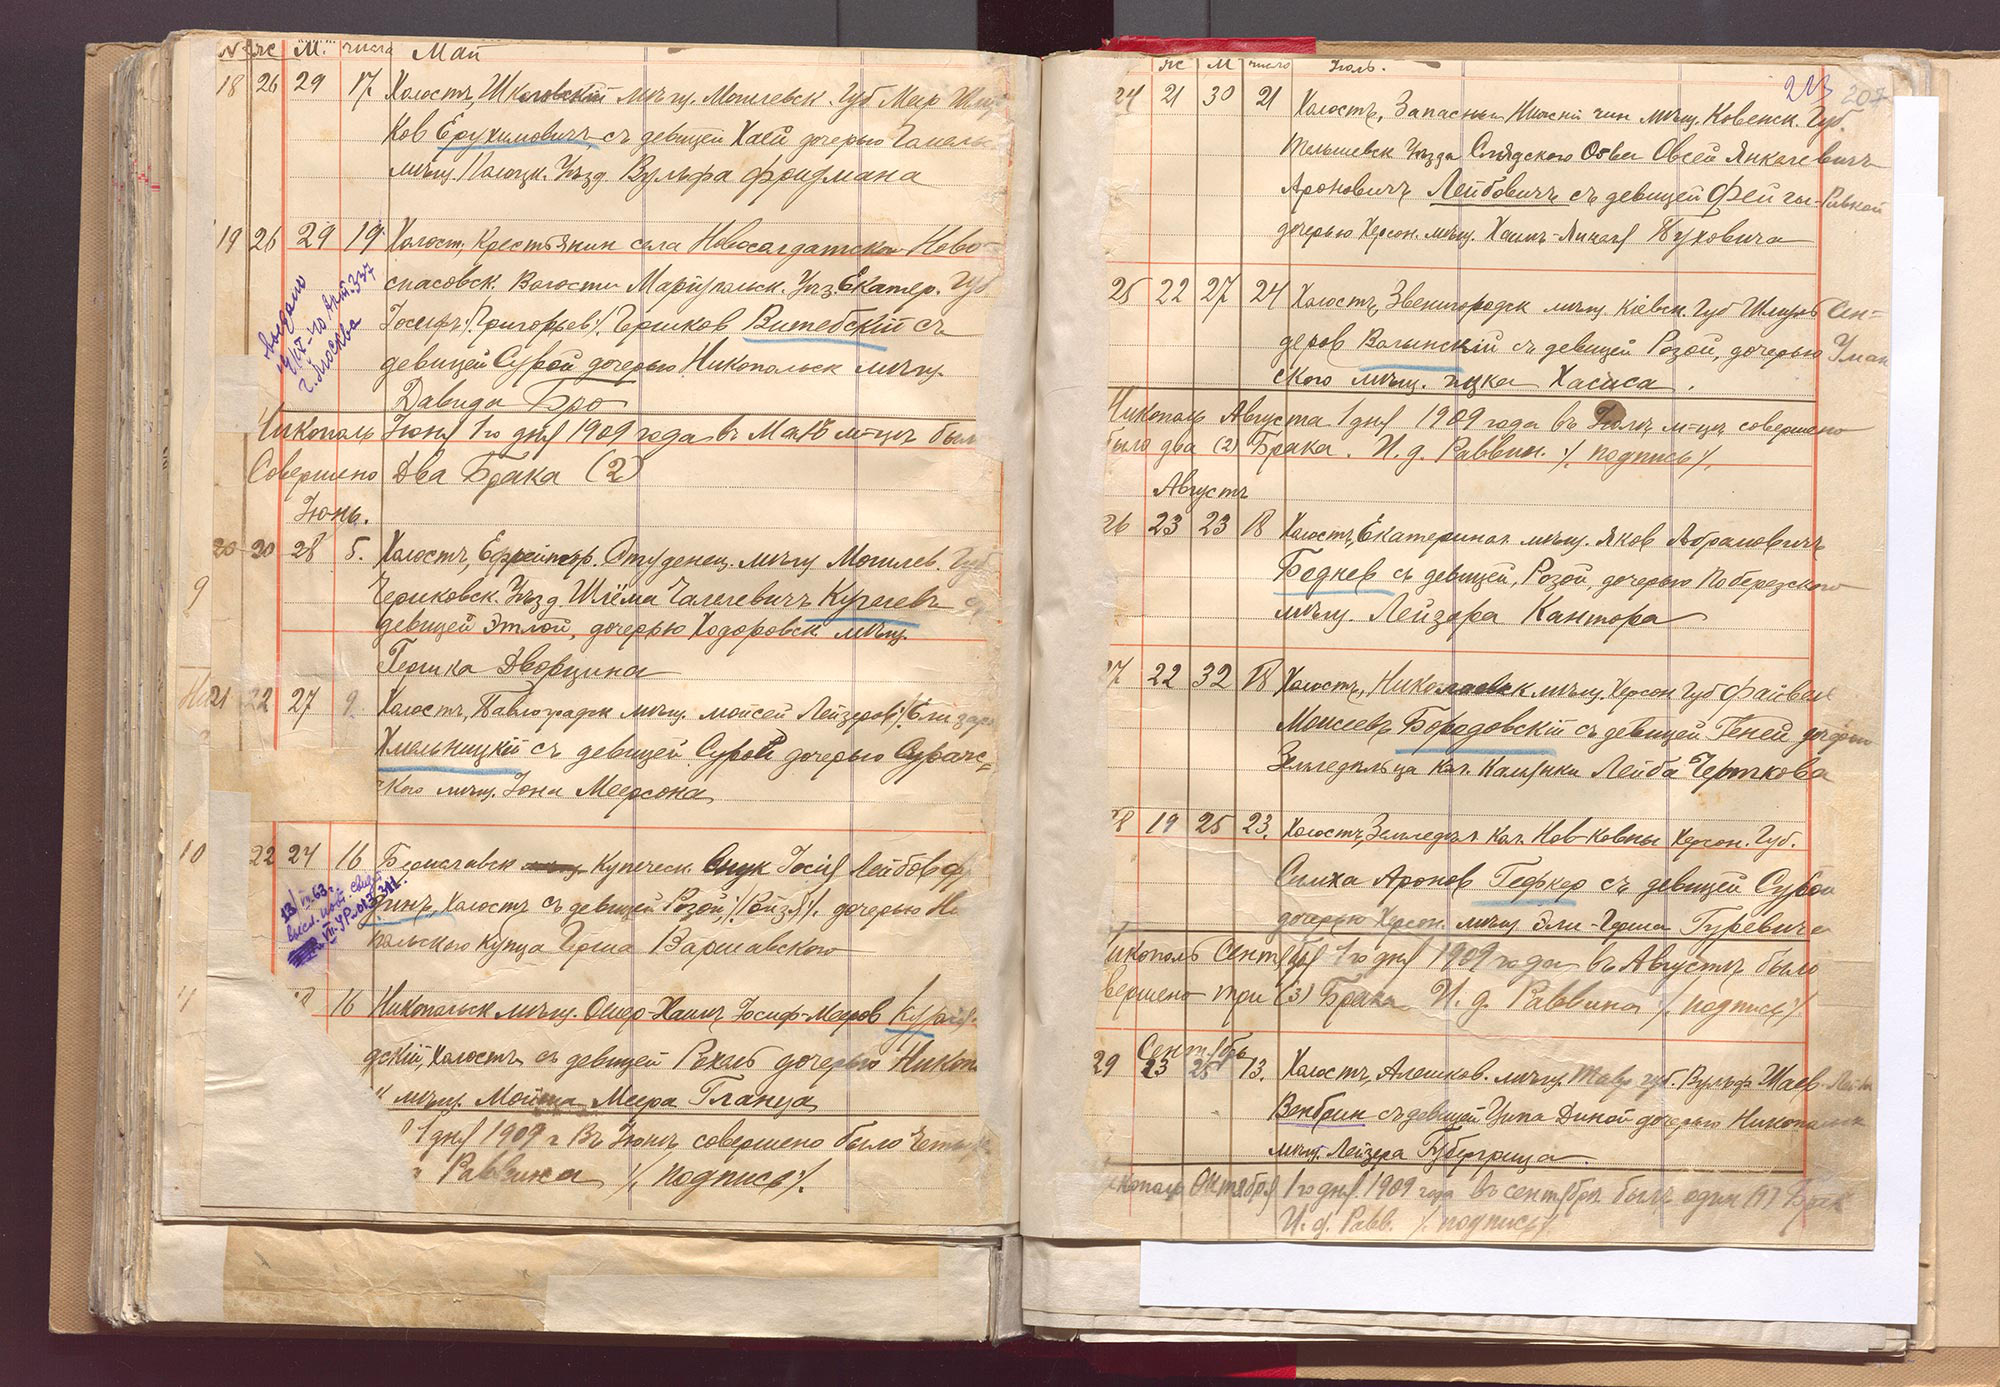 № же М. числа Май
18 26 29 17 Холостъ, Шкловскій мѣщ. Могилевск. Губ Меер
ков Ерухимовичъ съ девицей Хаей дочерью
мѣщ Полоцк. Уѣзд. Вульфа Фридмана
19 26 29 19 Холост, Крестьянин села Новосолдатской Ново-
спасовск. Волости Маріупольск. Уѣз. Екатер. Губ
Іосифъ /Григорьев/ Гершков Витебскій съ
девицей Сурой дочерью Никополъск мѣщ.
Давида Бро
выдано
г. Москва
Никополь Іюня 1го дня 1909 года въ Маѣ м-цѣ был
Совершено Два Брака (2)
Іюнь.
20 20 28 5. Холостъ, Ефрейтор. мѣщ Могилев. Губ
Чериковск. Уѣзд. Шлёма Кугелевъ
9
девицей Этлой, дочерью Ходоровск. мѣщ.
Гершка Дворцина
21 22 27 9. Холостъ, Павлоградск мѣщ. Мойсей Лейзеров /Елизаро
Хмельницкій съ девицей Сурой дочерью Сураж-
ского мѣщ. Іона Меерсона
10 22 24 16 Бериславск Купеческ. Внук Іосія Лейбов
динъ, Холостъ съ девицей Розой, /Ройзя/. дочерью Ни
польского купца Герша Варшавского
16 Никопольск мѣщ. Ошер-Хаимъ Іосиф-Мееров
дскій, Холостъ съ девицей Рохель дочерью Никоп
мѣщ. Мойша Меера Гланца
1 дня 1909 г Въ Іюнѣ совершено было Четыре
Раввина /. подпись/.
же М число Іюль.
213 207
24 21 30 21 Холостъ, Запасный Нижній чин мѣщ. Ковенск. Губ.
Тельшевск Уезда Обва Овсей Янкелевичъ
Ароновичъ Лейбовичъ съ девицей Фейгы-Ривкой
дочерью Херсон. мѣщ. Хаимъ- Духовича
25 22 27 24 Холостъ, Звенигородск мѣщ Кіевск. Губ Шлиомъ Сен-
деров Волынскій съ девицей Розой, дочерью Уман
ского мѣщ. Ицка Хасиса.
Никополь Августа 1 дня 1909 года въ Іюлѣ м-цѣ совершено
было два (2) Брака. И. д. Раввин. /. подпись/.
Августъ
26 23 23 18 Холостъ, Екатеринол мѣщ. Яков Абрамовичъ
Беднев съ девицей, Розой, дочерью Поберезского
мѣщ. Лейзера Кантора
27 22 32 18 Холостъ, Николаевск мѣщ. Херсон Губ Файвель
Моисеевъ Бородовскій съ девицей Геней дочерью
Земледельца кол. Лейба Черткова
28 19 25 23. Холостъ, Земледел кол. Нов-Ковны Херсон. Губ.
Симха Аронов Гефтер съ девицей Сурой
дочерью Херсон. мѣщ Эли-Герша Гуревича
Никополь Сентября 1го дня 1909 года въ Августѣ было
вершено три (3) Брака И. д. Раввина /. подпись/.
Сентябрь
29 23 25 13. Холостъ, Алешков. мѣщ. Тавр губ. Вульф Шаев-Лейб
Венбрин съ девицей Ципа Диной дочерью Никопольск
мѣщ. Лейзера Губергрица.
кополь Октября 1го дня 1909 года въ сентябрѣ былъ один (1) Брак
И. д. Равв. /. подпись/.